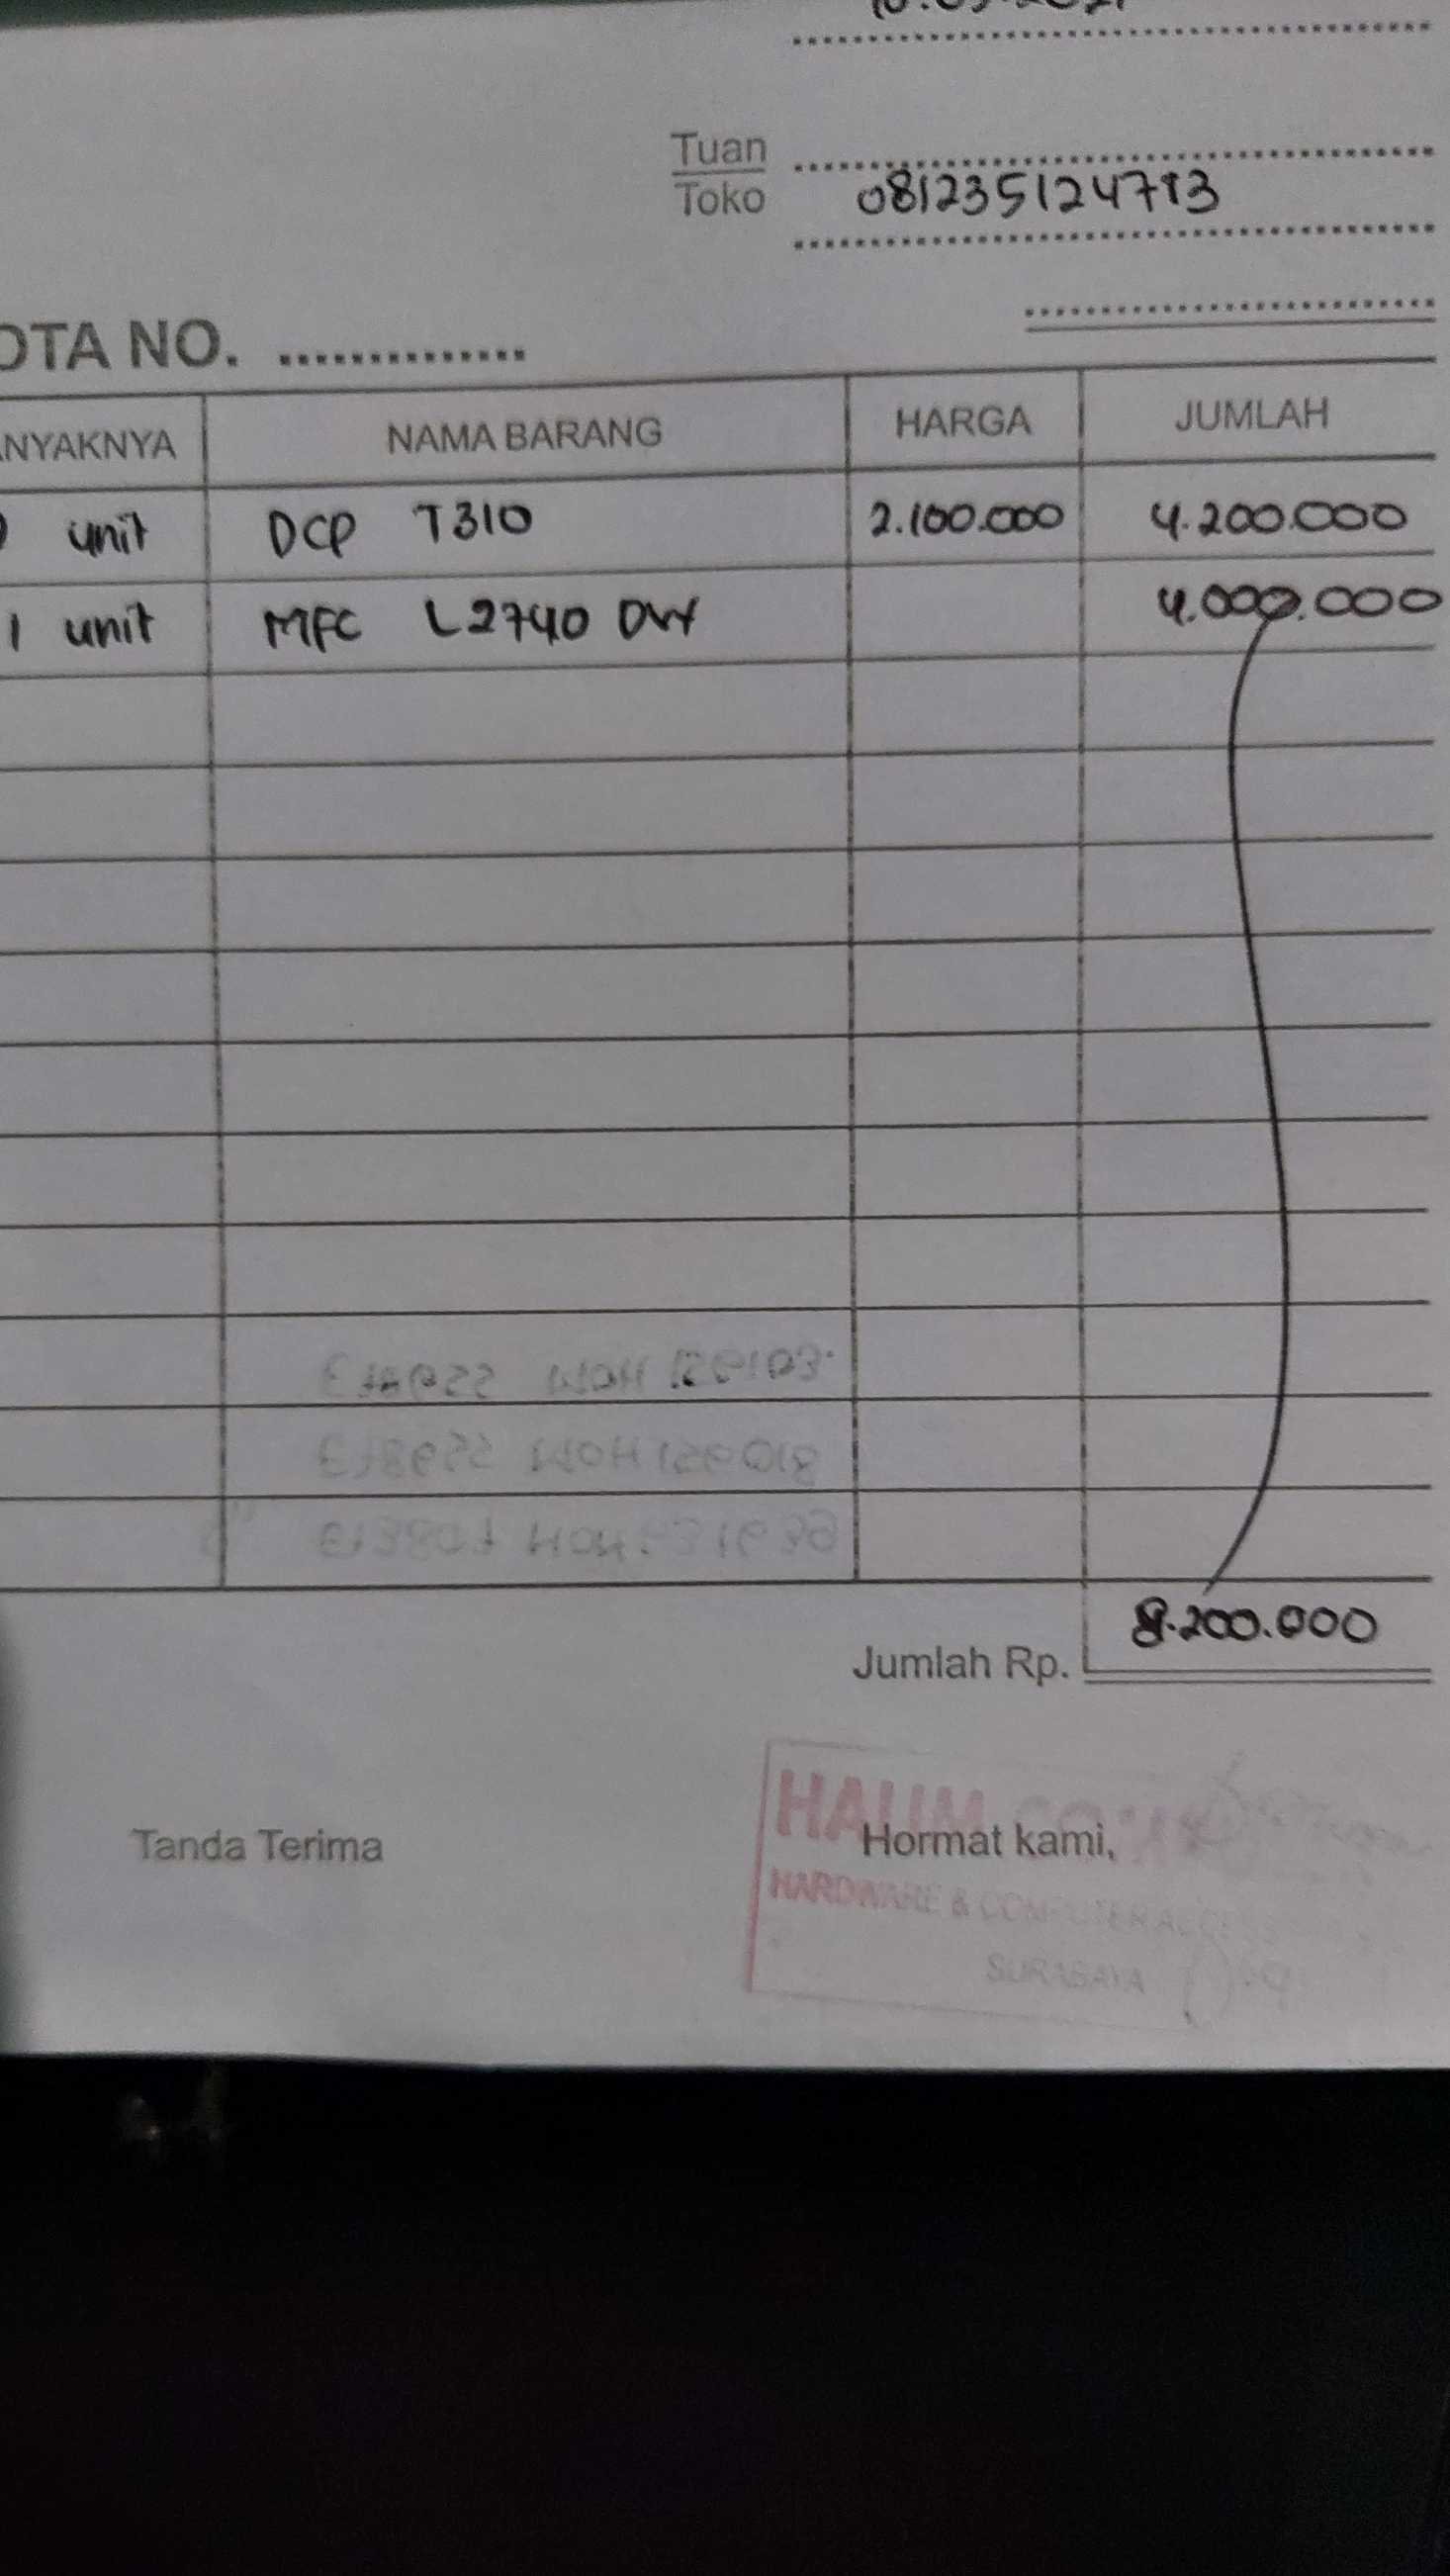 Tuan
Toko 081235124713
OTA NO. ..............
NYAKNYA NAMA BARANG HARGA JUMLAH
unit DCP T310 2.100.000 4.200.000
1 unit MFC L2740 DW 4.000.000
8.200.000
Jumlah Rp.
Tanda Terima Hormat kami,
HARDWARE & COMPUTER
SURABAYA